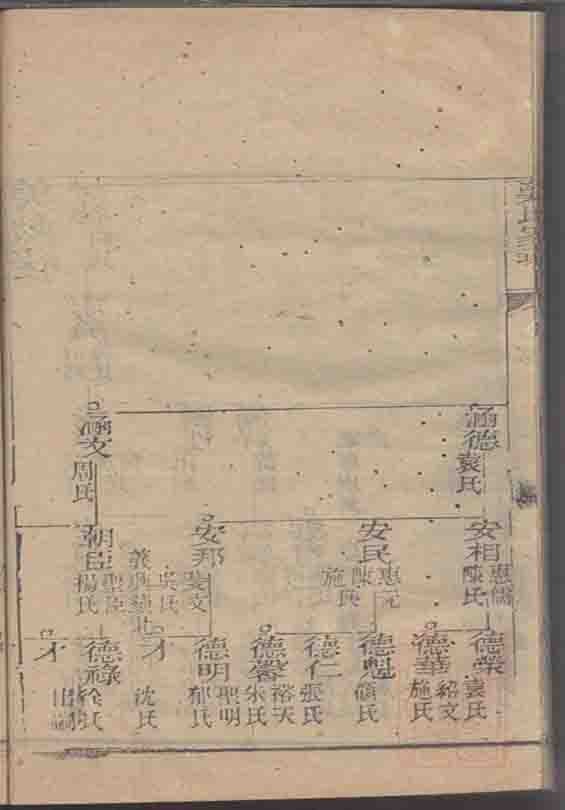 涵德
袁氏
涵文
周氏
安相
惠儒
陳氏
安民
惠元
施
安邦
斐文
吳氏
朝臣
聖臣
楊氏
德榮
袁氏
德華
紹文
施氏
德魁
顧氏
德仁
張氏
德馨
裕天
朱氏
德明
聖明
郁氏
才
沈氏
德祿
徐氏
才